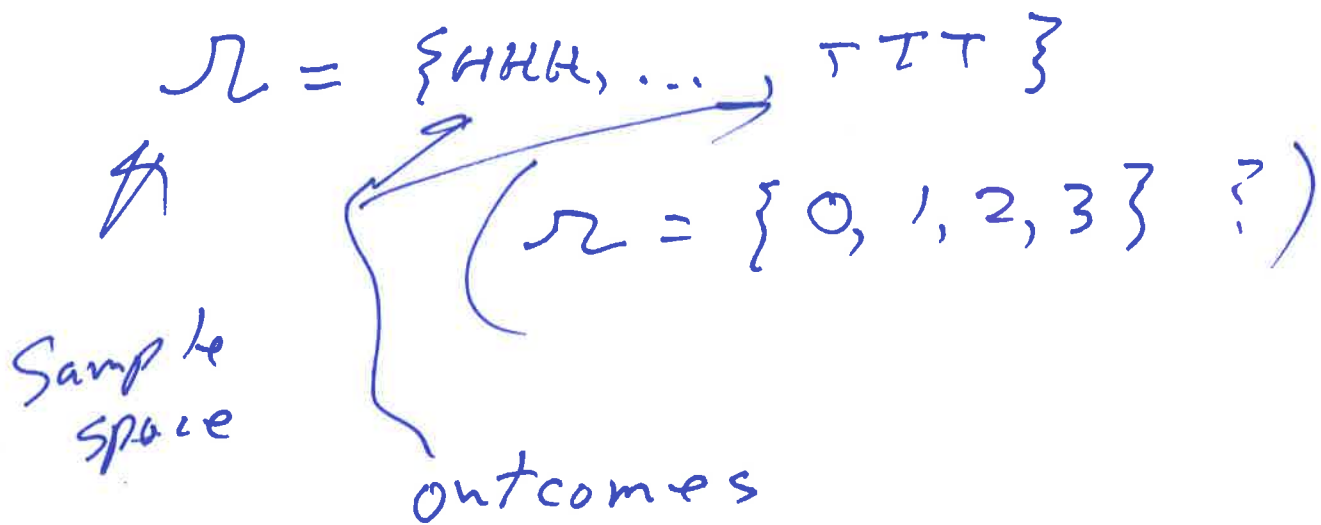 Ω = {HHH, ... , TTT}
(Ω = {0, 1, 2, 3} ?)
Sample
space
outcomes